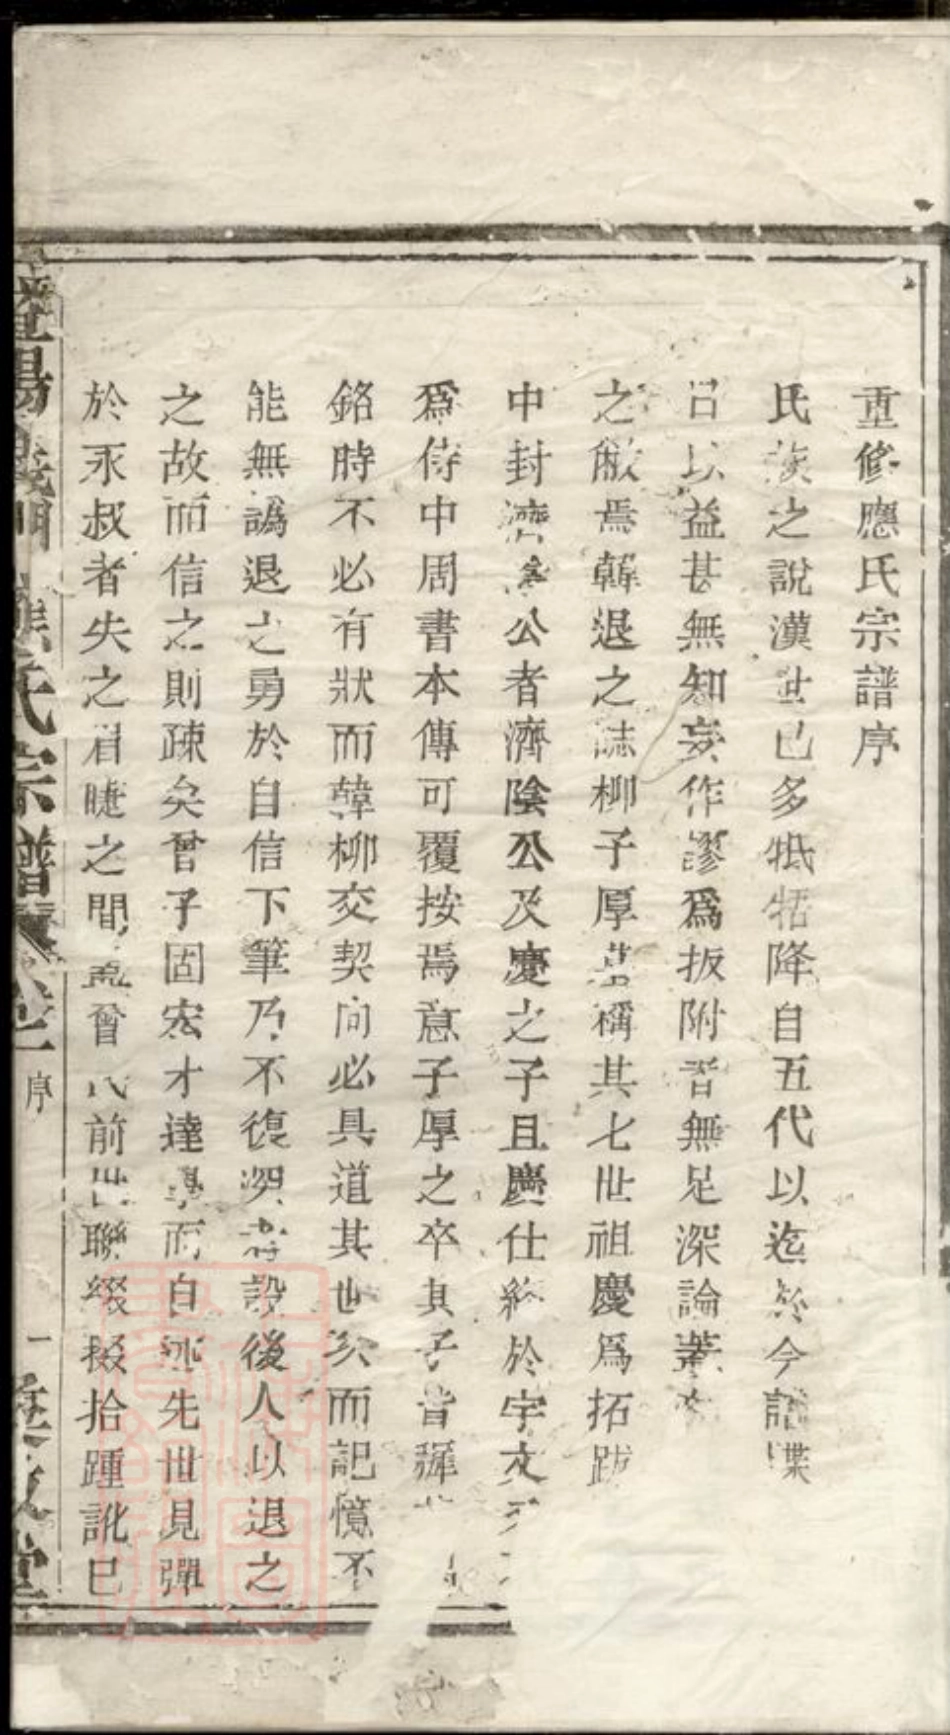 重修應氏宗譜序
氏族之說漢世已多牴牾降自五代以迄於今譜牒
呂以益甚無知妄作謬爲扳附者無足深論蓋
之敝焉韓退之誌柳子厚墓稱其七世祖慶爲拓跋
中封濟陰公者濟陰公及慶之子且慶仕終於宇文
爲侍中周書本傳可覆按焉意子厚之卒其子皆穉
銘時不必有狀而韓柳交契向必具道其世次而記憶不
能無譌退之勇於自信下筆乃不復深考設後人以退之
之故而信之則疎矣曾子固宏才達學而自述先世見彈
於永叔者失之眉睫之間甚會氏前世聯綴掇拾踵訛已
暨陽 門應氏宗譜 卷一 序 一 堂